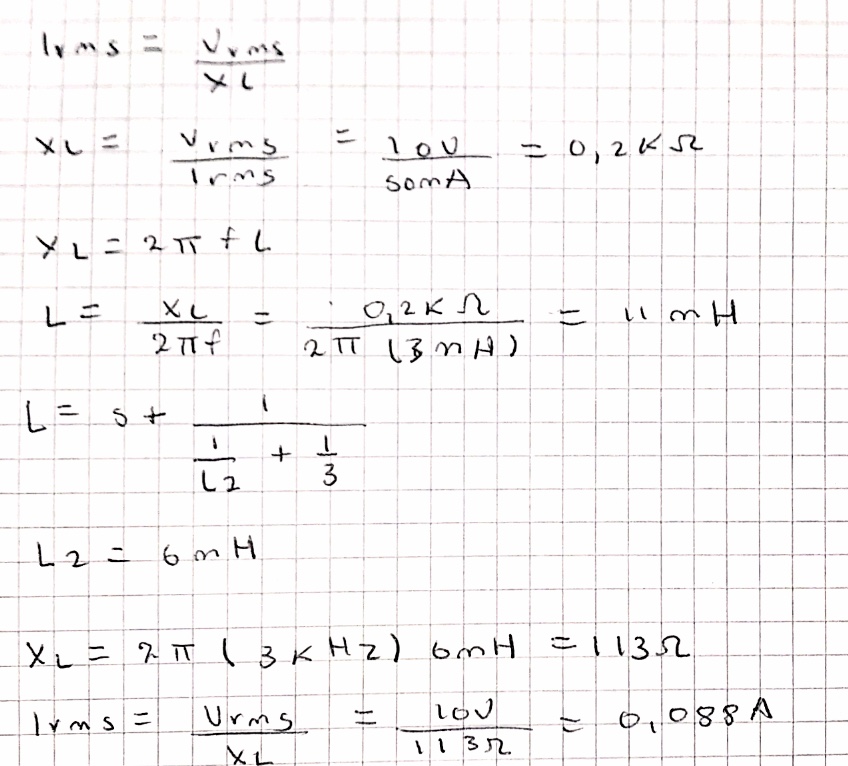 Irms = Vrms / XL
XL = Vrms / Irms = 10V / 50mA = 0,2KΩ
XL = 2π f L
L = XL / 2πf = 0,2KΩ / 2π (3mH) = 11 mH
L = 5 + 1 / (1/L2 + 1/3)
L2 = 6mH
XL = 2π (3KHz) 6mH = 113Ω
Irms = Vrms / XL = 10V / 113Ω = 0,088A